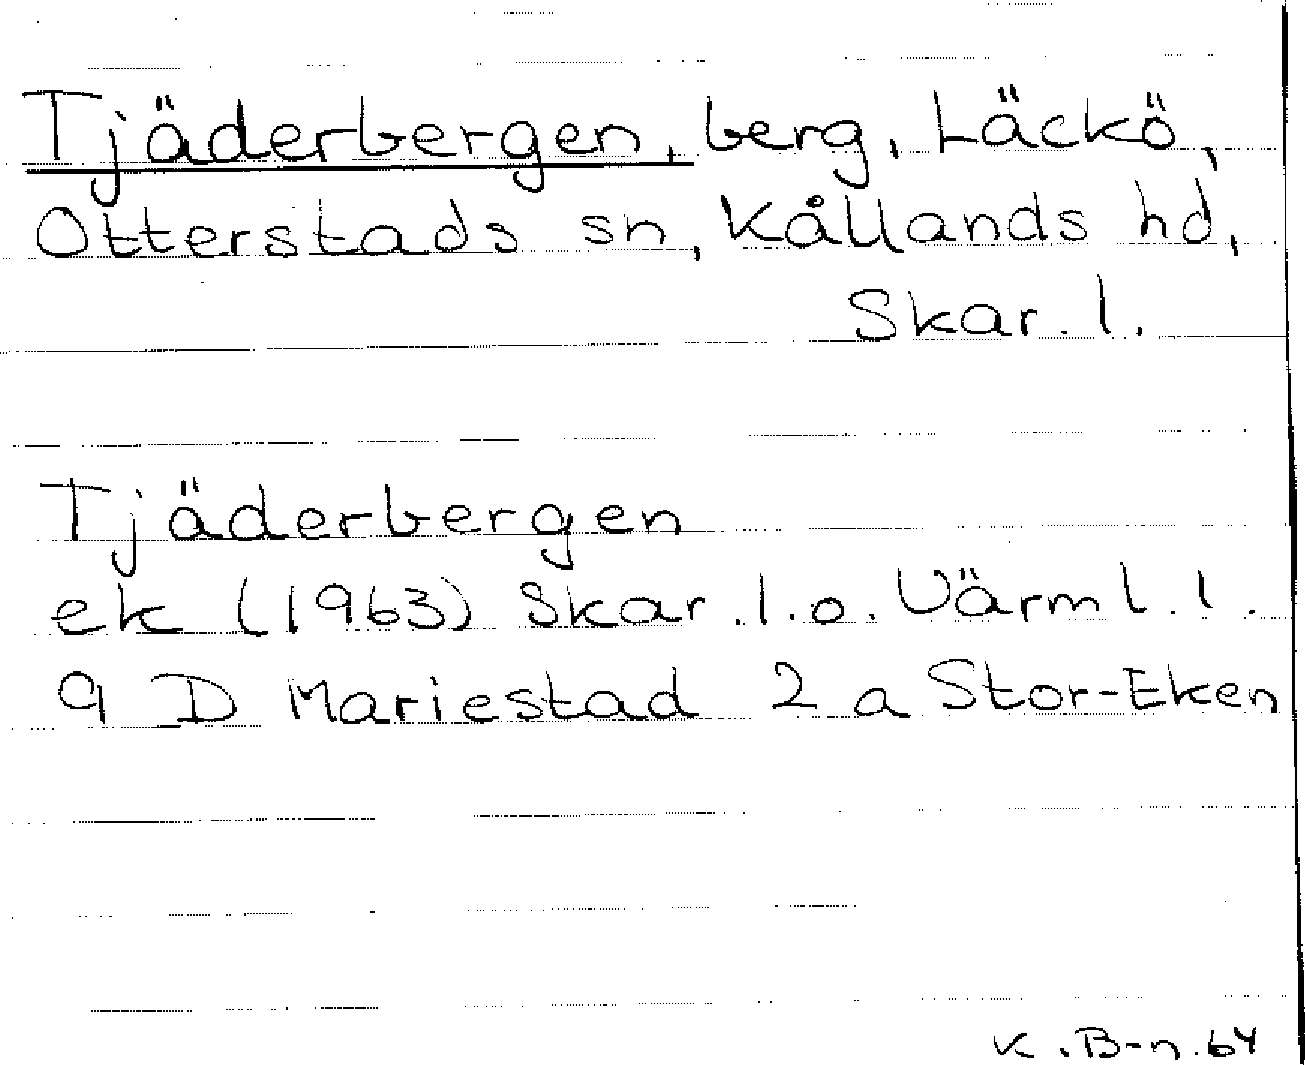 Tjäderbergen, berg, Läckö,
Otterstads sn, Kållands hd,
Skar. l.
Tjäderbergen
ek (1963) Skar. l. o. Värml. l.
9 D Mariestad 2 a Stor-Eken
K. B-n. 64